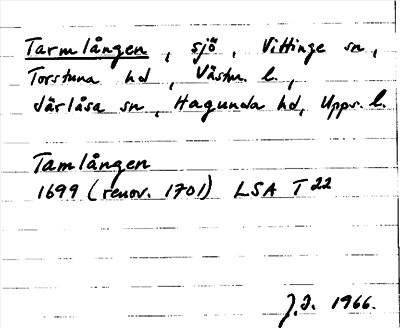 Tarmlången, sjö, Vittinge sn,
Torstuna hd, Västm. l.,
Järlåsa sn, Hagunda hd, Upps. l.
Tamlången
1699 (renov. 1701) LSA T 22
J.I. 1966.